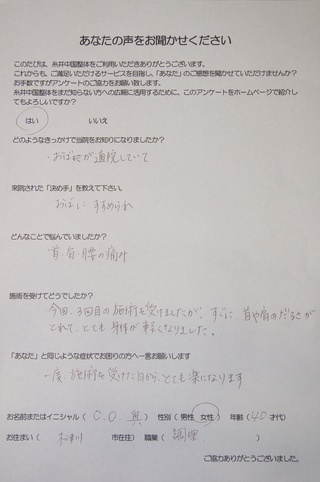 あなたの声をお聞かせください
このたびは、糸井中国整体をご利用いただきありがとうございます。
これからも、ご満足いただけるサービスを目指し、「あなた」のご感想を聞かせていただけませんか?
お手数ですがアンケートのご協力をお願い致します。
糸井中国整体をまだ知らない方への広報に活用するために、このアンケートをホームページで紹介し
てもよろしいですか?
はい　いいえ
どのようなきっかけで当院をお知りになりましたか?
・おばが通院していて
来院された「決め手」を教えて下さい。
おばに すすめられ
どんなことで悩んでいましたか?
首・肩・腰の痛み
施術を受けてどうでしたか?
今回、3回目の施術を受けましたが、すぐに 首や肩のだるさが
とれて、とても 身体が 軽くなりました。
「あなた」と同じような症状でお困りの方へ一言お願いします
一度、施術を受けた日から、とても 楽になります
お名前またはイニシャル（ C.O 様）性別（ 男性 女性 ）年齢（ 40 才代）
お住まい（ 市在住）職業（ 調理 ）
ご協力ありがとうございました。